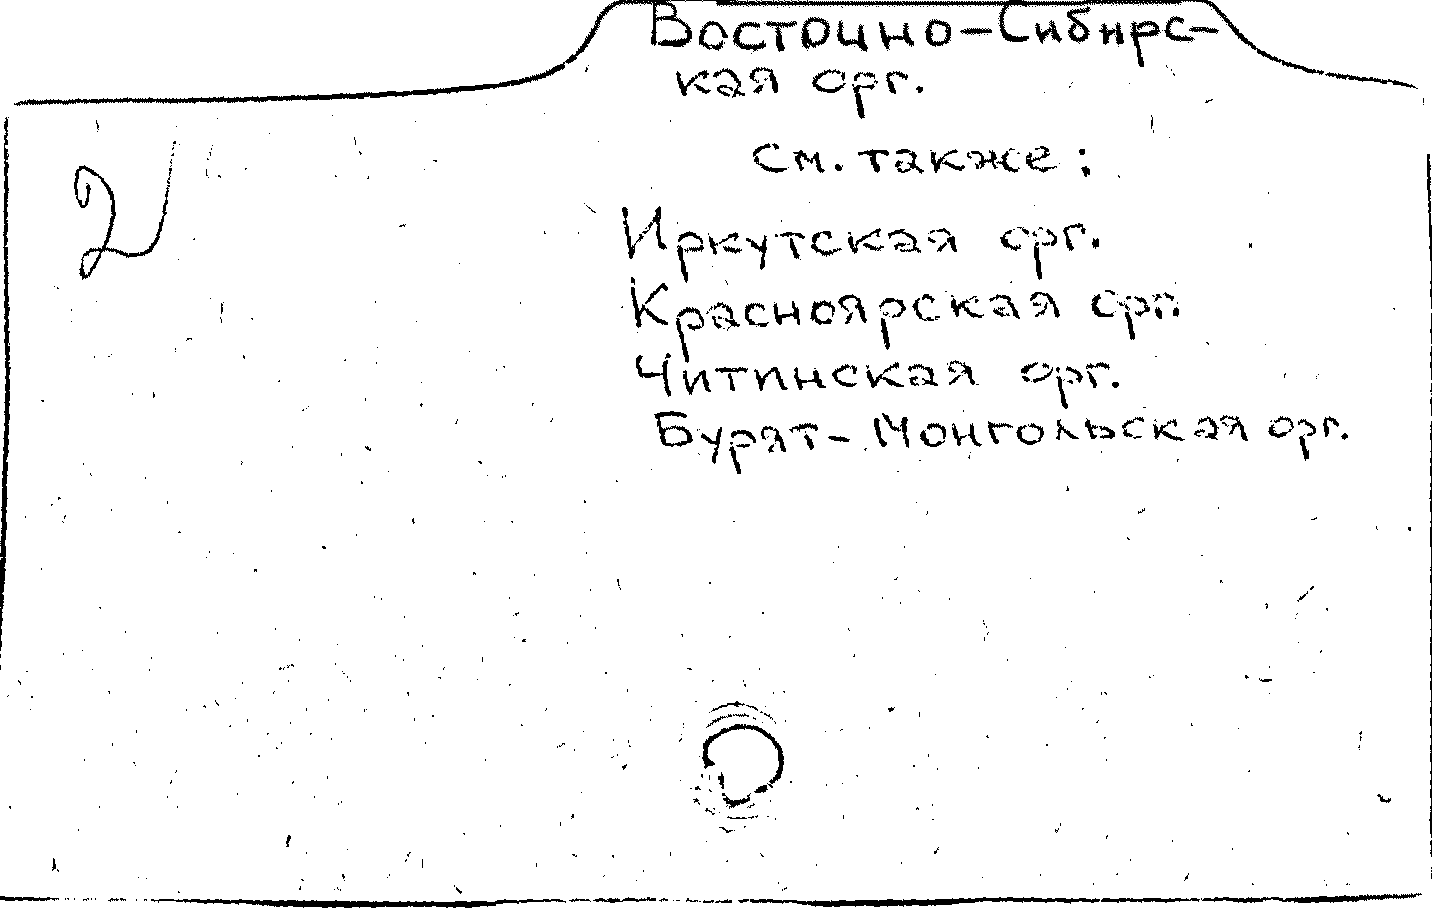 Восточно-Сибирс-
кая орг.
См. также:
2
Иркутская орг.
Красноярская орг.
Читинская орг.
Бурят-Монгольская орг.